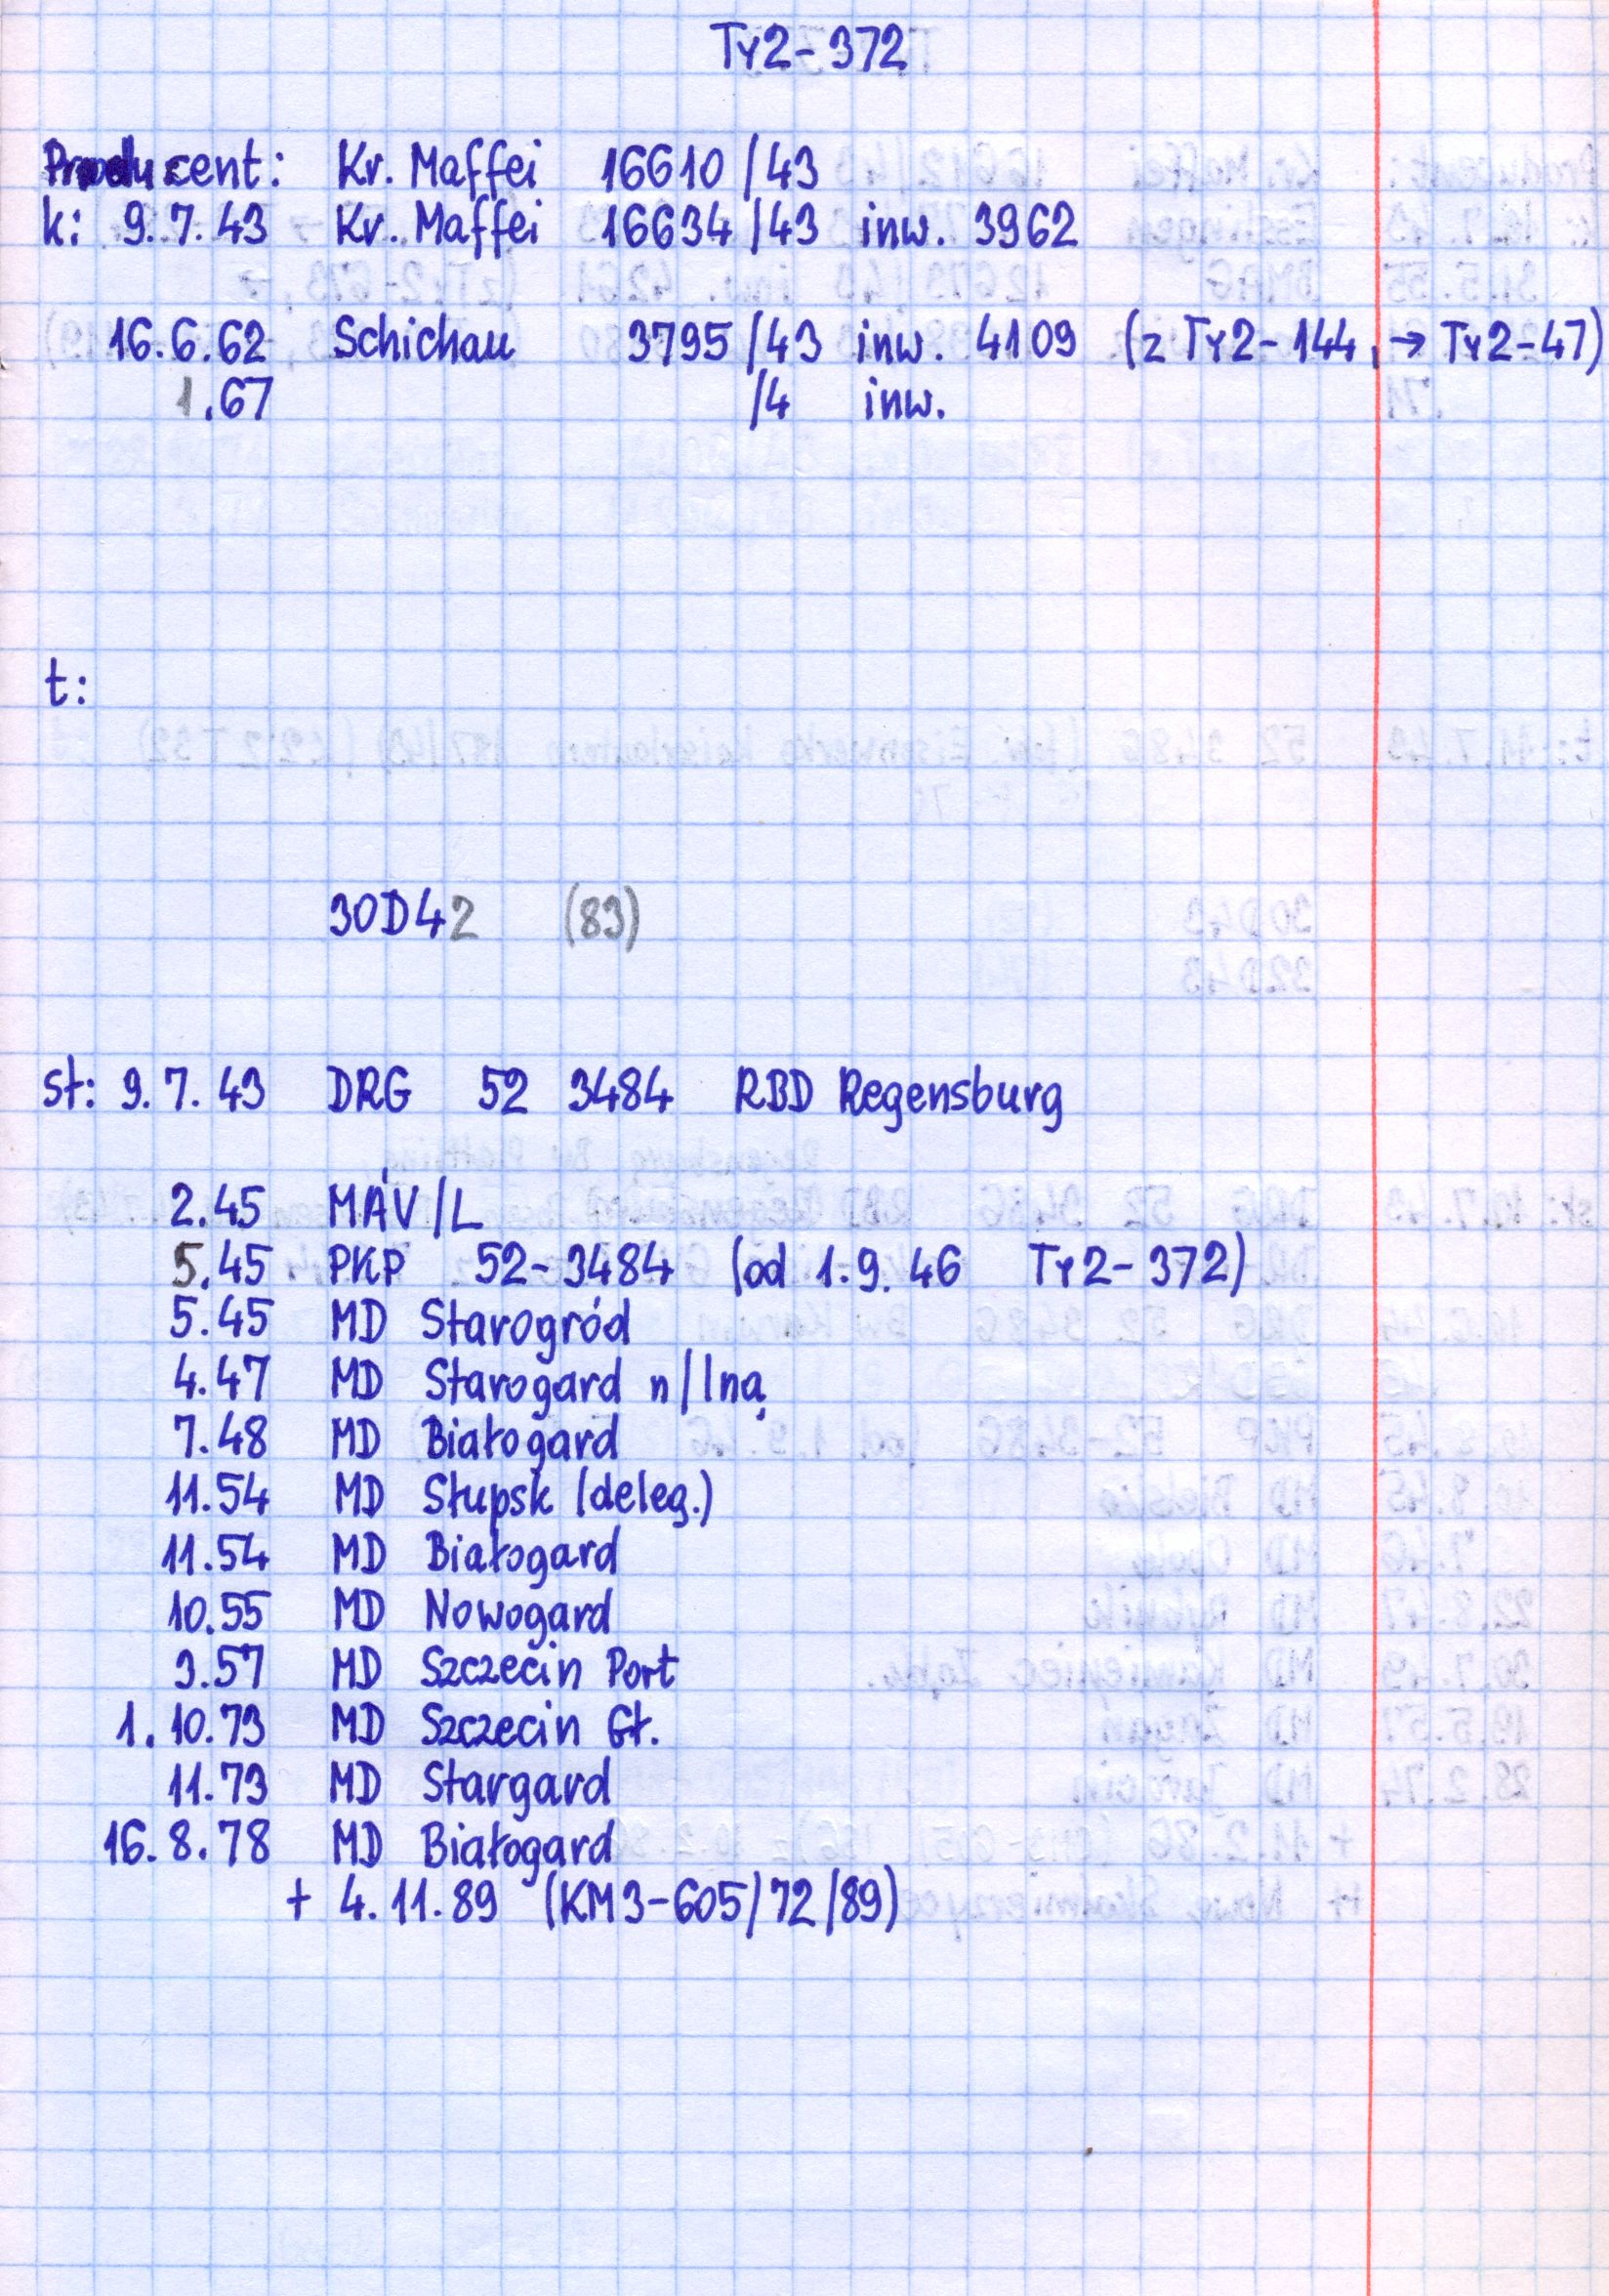 Ty2-372
Producent: Kr. Maffei 16610/43
k: 9.7.43 Kr. Maffei 16634/43 inw. 3962
16.6.62 Schichau 3795/43 inw. 4109 (z Ty2-144, → Ty2-47)
1.67 /4 inw.
t:
30D42 (83)
st: 9.7.43 DRG 52 3484 RBD Regensburg
2.45 MÁV/L
5.45 PKP 52-3484 (od 1.9.46 Ty2-372)
5.45 MD Starogród
4.47 MD Starogard n/Iną
7.48 MD Białogard
11.54 MD Słupsk (deleg.)
11.54 MD Białogard
10.55 MD Nowogard
3.57 MD Szczecin Port
1.10.73 MD Szczecin Gł.
11.73 MD Stargard
16.8.78 MD Białogard
+ 4.11.89 (KM3-605/72/89)